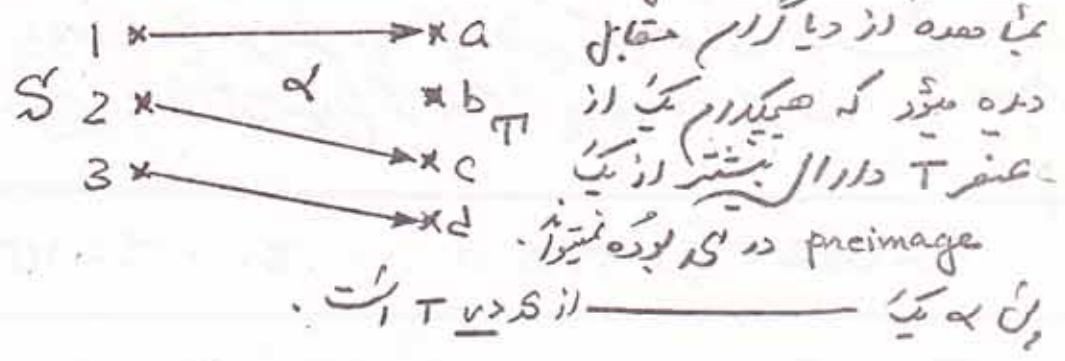 1 a بمشاهده از دیاگرام مقابل
S 2 α b T دیده میشود که هیچکدام یک از
3 c عنصر T دارای بیشتر از یک
d preimage در S بوده نمیتواند.
پس α یک ——— از S در T است.